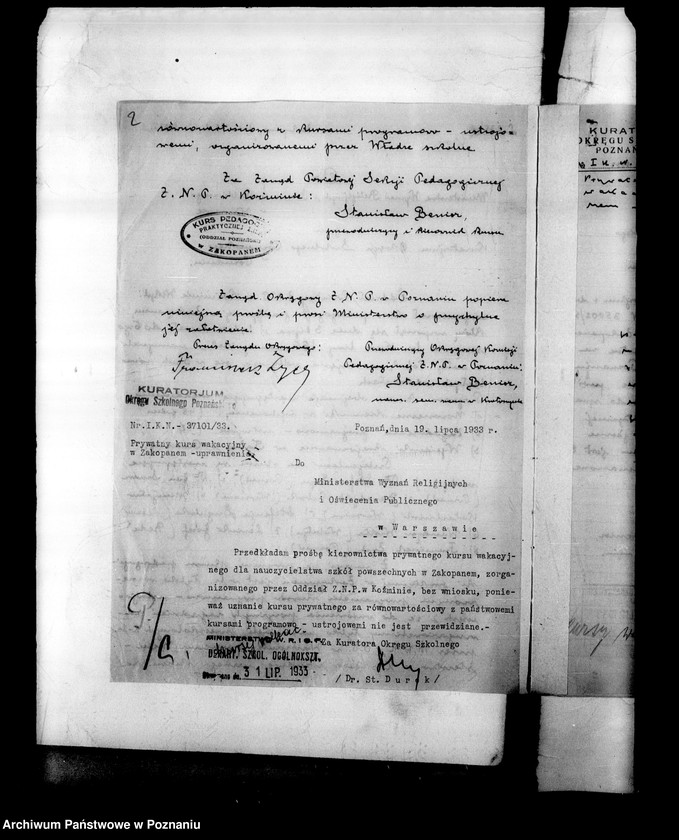 2
równowartościowy z kursami programowo - ustrojo-
wemi, organizowanemi przez Władze szkolne
Za Zarząd Powiatowej Sekcji Pedagogicznej
Z. N. P. w Koźminie:
Stanisław Benier,
przewodniczący i kierownik kursu
KURS PEDAGOG
PRAKTYCZNEJ
(ODDZIAŁ POZNAŃSKI)
w ZAKOPANEM
Zarząd Okręgowy Z. N. P. w Poznaniu popiera
niniejszą prośbę i prosi Ministerstwo o przychylne
jej załatwienie.
Prezes Zarządu Okręgowego:
Przewodniczący Okręgowej Komisji
Pedagogicznej Z. N. P. w Poznaniu:
Stanisław Benier,
KURATORJUM
Okręgu Szkolnego Poznańskiego
Nr.I.K.N.- 37101/33.
Poznań,dnia 19. lipca 1933 r.
Prywatny kurs wakacyjny
w Zakopanem -uprawnienia
Do
Ministerstwa Wyznań Religijnych
i Oświecenia Publicznego
w Warszawie
Przedkładam prośbę kierownictwa prywatnego kursu wakacyj-
nego dla nauczycielstwa szkół powszechnych w Zakopanem, zorga-
nizowanego przez Oddział Z.N.P.w Koźminie, bez wniosku, ponie-
waż uznanie kursu prywatnego za równowartościowy z państwowemi
kursami programowo - ustrojowemi nie jest przewidziane.-
MINISTERSTWO W. R. i O. P.
Za Kuratora Okręgu Szkolnego
DEPART. SZKOL. OGÓLNOKSZT.
31 LIP. 1933
/Dr. St. Durek/
KURAT
OKRĘGU S
POZNAŃ
I K. N.
Archiwum Państwowe w Poznaniu